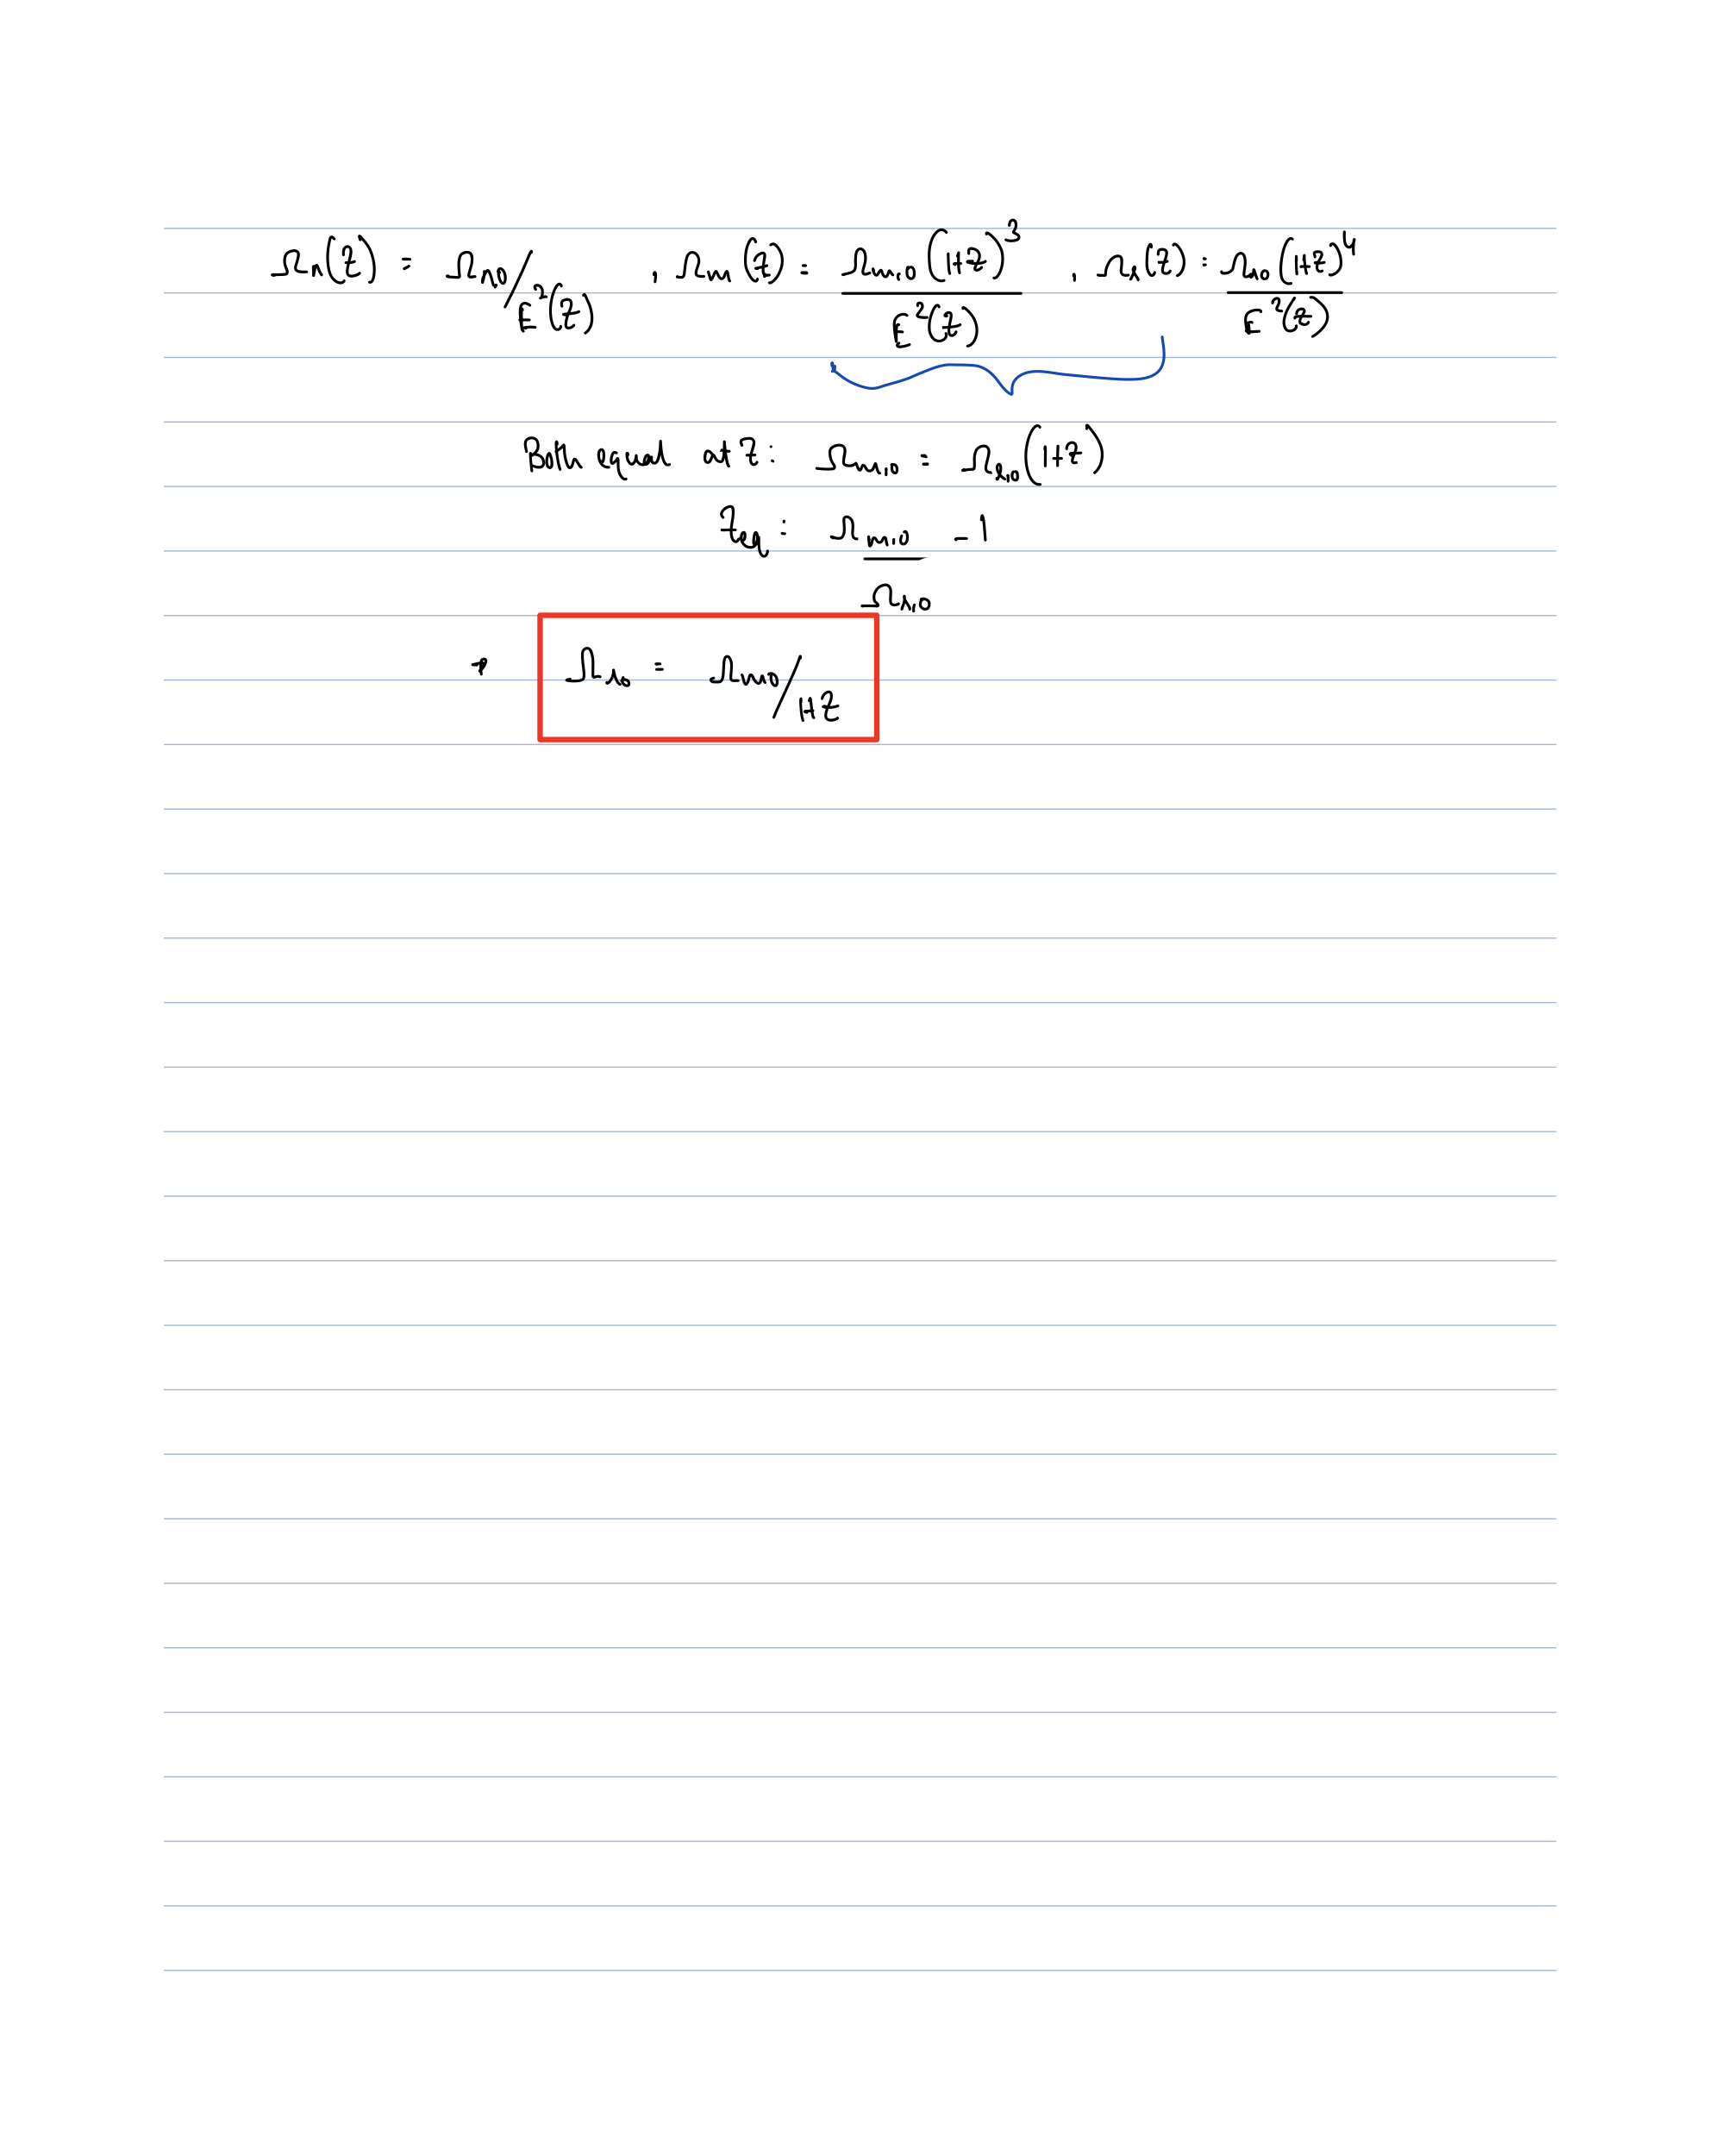 Ω_Λ(z) = Ω_Λ0/E²(z) , Ω_m(z) = Ω_m,0 (1+z)³/E²(z) , Ω_r(z) = Ω_r,0 (1+z)⁴/E²(z)
Both equal at z: Ω_m,0 = Ω_r,0 (1+z)
z_eq = Ω_m,0/Ω_r,0 - 1
Ω_r0 = Ω_m0/1+z